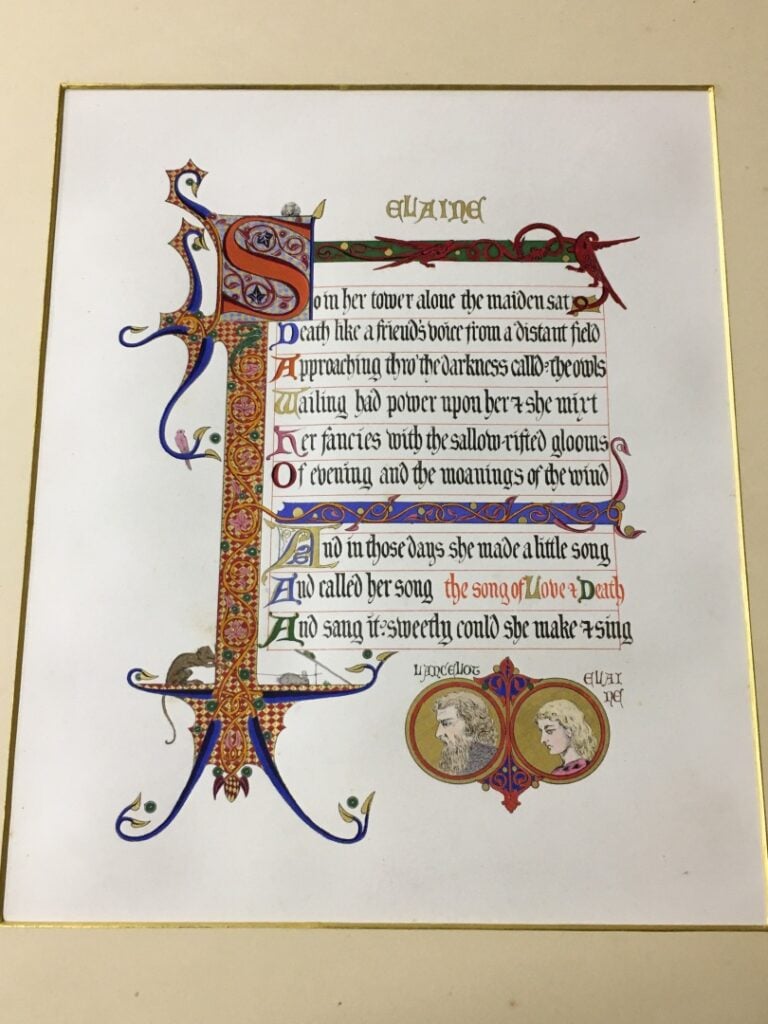 ELAINE
So in her tower alone the maiden sat
Death like a friend's voice from a distant field
Approaching thro' the darkness call'd: the owls
Wailing had power upon her & she mixt
Her fancies with the sallow-rifted glooms
Of evening and the moanings of the wind
And in those days she made a little song
And called her song the song of Love & Death
And sang it: sweetly could she make & sing
LANCELOT
ELAI
NE